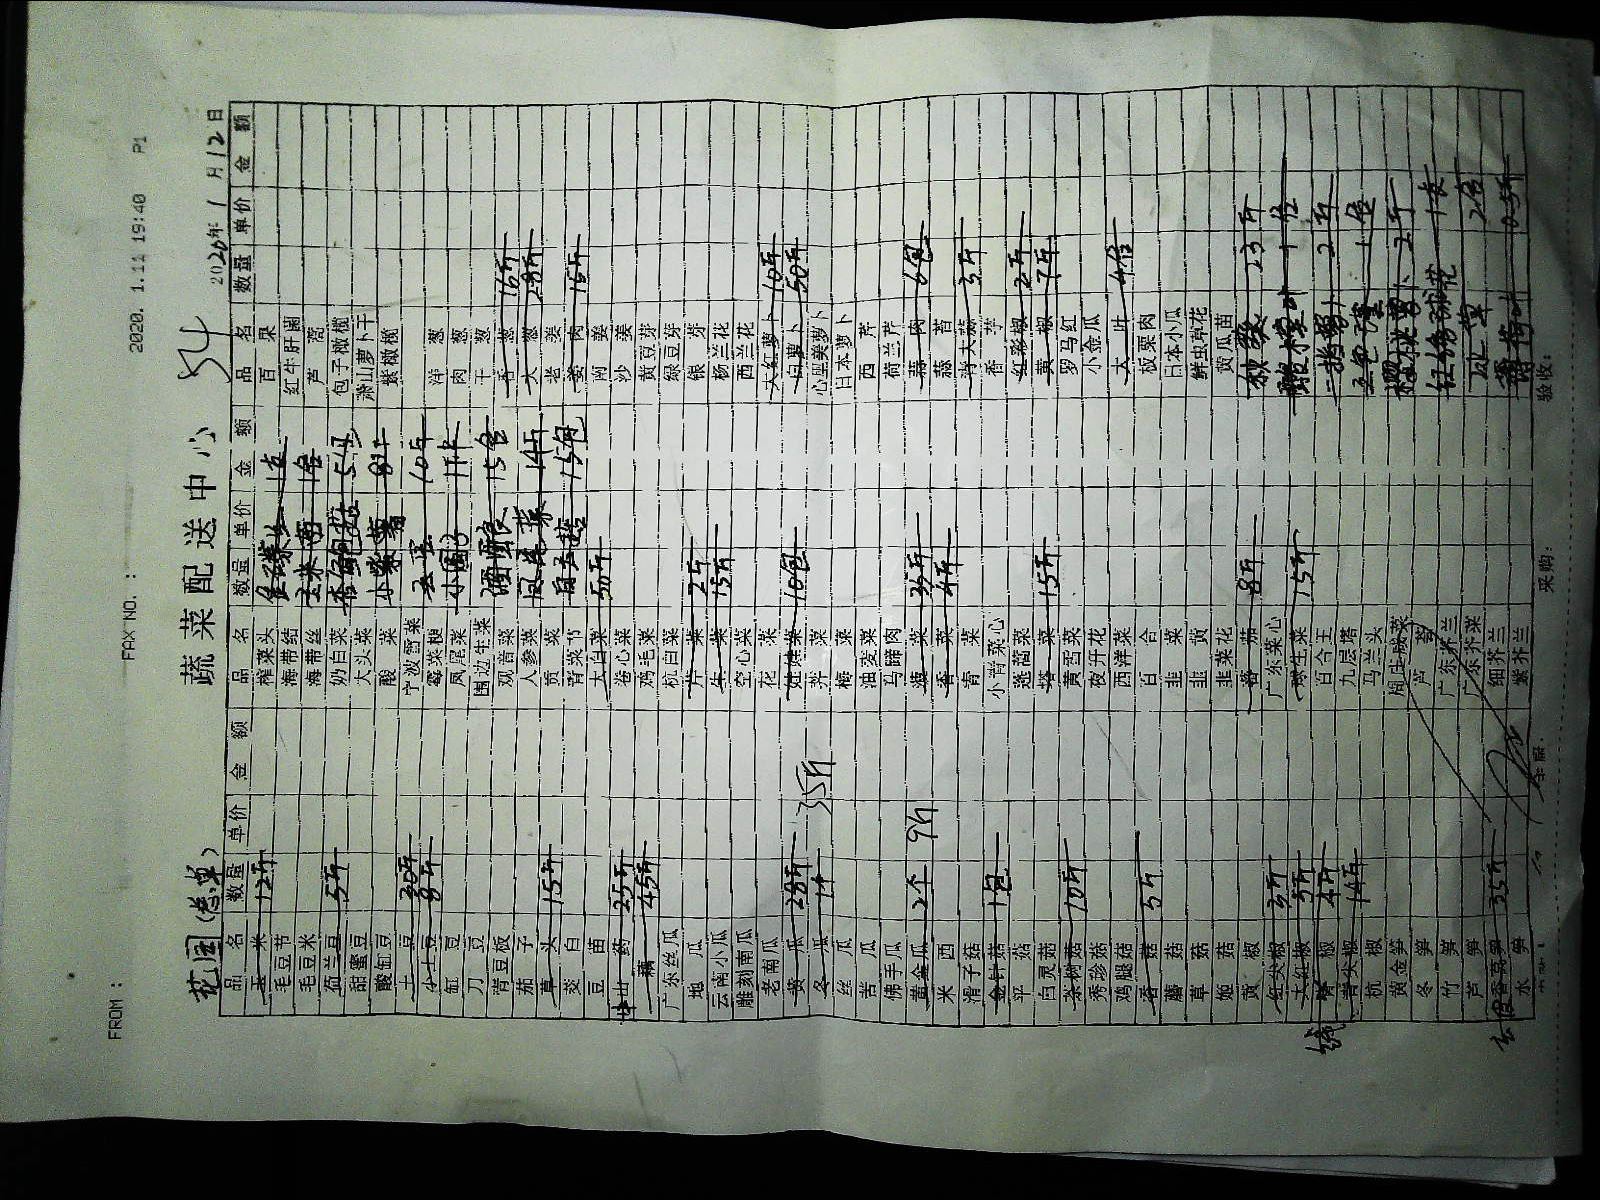 FROM : FAX NO. : 2020. 1.11 19:40 P1
花园(总单) 蔬菜配送中心 54 2020年 1 月 12 日
品名 数量 单价 金额 品名 数量 单价 金额 品名 数量 单价 金额
玉米 12斤
毛豆节
毛豆米
荷兰豆 5斤
甜蜜豆
酸缸豆
土豆 30斤
小土豆 8斤
缸豆
刀豆
青豆板
茄子
草头 15斤
茭白
豆苗
山药 25斤
藕 45斤
广东丝瓜
地瓜
云南小瓜
雕刻南瓜
老南瓜
黄瓜 28斤 35斤
冬瓜 1个
丝瓜
苦瓜
佛手瓜
黄金瓜 2个 9个
米西
滑子菇
金针菇 1包
平菇
白灵菇
茶树菇 10斤
秀珍菇
鸡腿菇
香菇 5斤
蘑菇
草菇
姬菇
黄椒
红尖椒 3斤
大红椒 5斤
椒 4斤
青尖椒 14斤
杭椒
黄金笋
冬笋
竹笋
芦笋
香莴笋 35斤
水笋
榨菜头
海带结
海带丝
奶白菜
大头菜
酸菜
宁波雪菜
霉菜梗
凤尾菜
围边生菜
观音菜
人参菜
贡菜
青菜节
大白菜 50斤
卷心菜
鸡毛菜
杭白菜
芹菜 2斤
生菜 15斤
空心菜
花菜
娃娃菜 10包
荠菜
梅菜
油麦菜
马蹄肉
菠菜 35斤
香菜 4斤
青菜
小青菜心
蓬蒿菜
塔菜 15斤
黄雪菜
夜开花
西洋菜
百合
韭菜
韭黄
韭菜花
落茄 8斤
广东菜心
球生菜 15斤
百合王
九层塔
马兰头
周庄咸菜
芦荟
广东芥兰
广东芥菜
细芥兰
紫芥兰
玉米 1包
小紫薯 8斤
毛豆 10斤
小圆子
酒酿 15盒
凤尾菜 14斤
15包
百果
红牛肝菌
芦蒿
包子橄榄
萧山萝卜干
紫橄榄
洋葱
肉葱
干葱
香葱 16斤
大葱 28斤
老姜
姜肉 15斤
南姜
沙姜
黄豆芽
绿豆芽
银芽
杨兰花
西兰花
大红萝卜 10斤
白萝卜 50斤
心里美萝卜
日本萝卜
西芹
荷兰芹
蒜肉 6包
蒜苔
青大蒜 3斤
香芋
红彩椒 2斤
黄椒 7斤
罗马红
小金瓜
大叶 4盒
板栗肉
日本小瓜
鲜虫草花
黄瓜苗
秋葵 23斤
2斤
2斤
2盒
薄荷叶 0.5斤
采购: 验收: